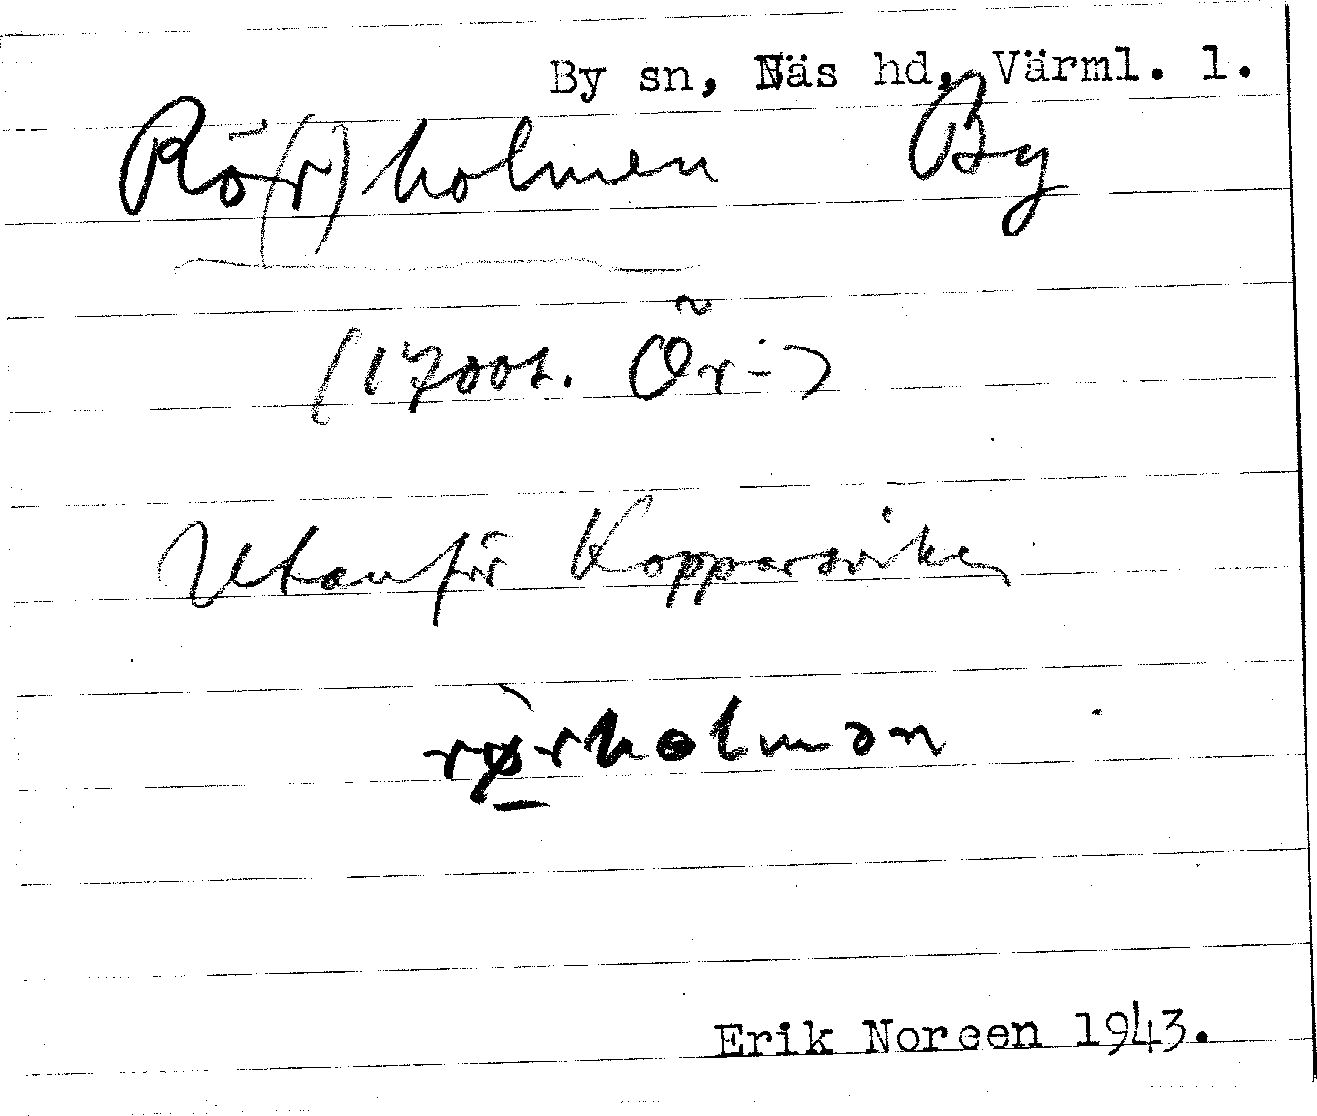 By sn, Näs hd, Värml. l.
Rö(r)holmen By
(1700t. Ör-)
Utanför Kopparsviken
rørholmən
Erik Noreen 1943.